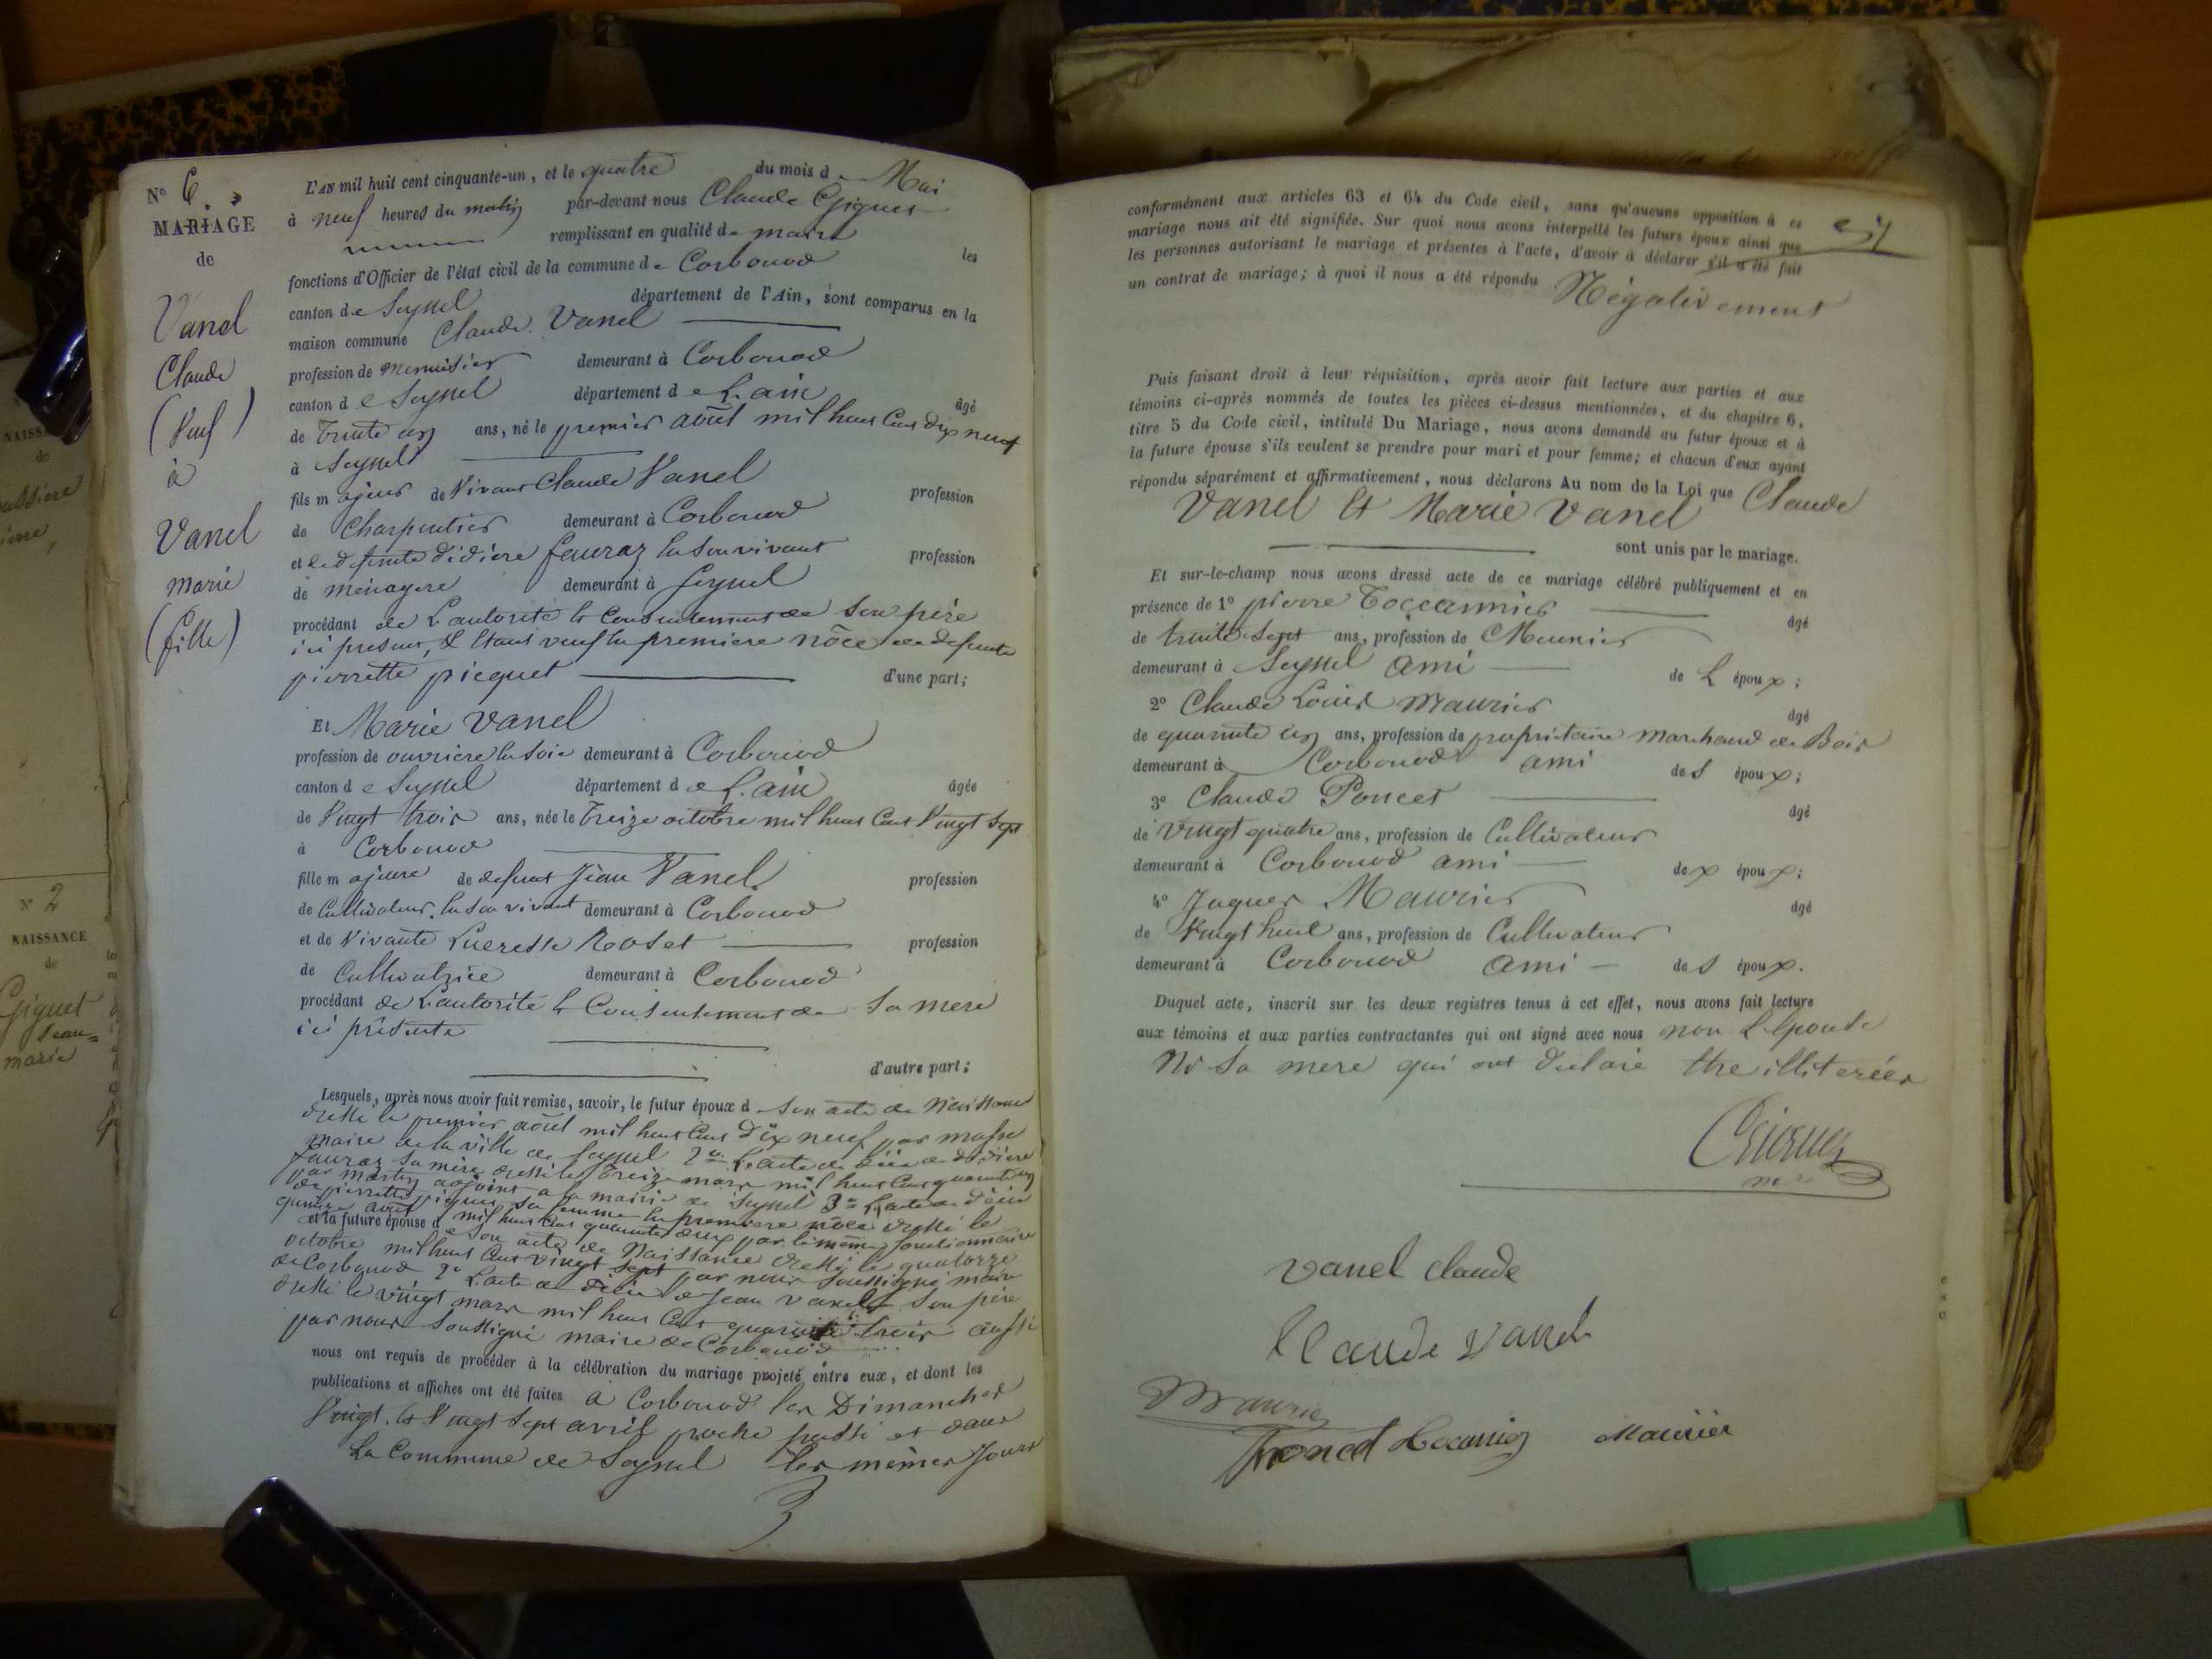 N° 6.
MARIAGE
de
Vanel
Claude
(Veuf)
à
Vanel
marie
(fille)
L'AN mil huit cent cinquante-un, et le quatre du mois de Mai
à neuf heures du matin par-devant nous Claude Giguet
remplissant en qualité de maire les
fonctions d'Officier de l'état civil de la commune de Corbonod
canton de Seyssel département de l'Ain, sont comparus en la
maison commune Claude Vanel
profession de menuisier demeurant à Corbonod
canton de Seyssel département de L'ain âgé
de trente un ans, né le premier août mil huit cent dix neuf
à Seyssel
fils majeur de Vivant Claude Vanel profession
de Charpentier demeurant à Corbonod
et de defunte didiere fauraz en son vivant profession
de ménagere demeurant à Seyssel
procédant de L'autorité et Consentement de son père
ici present, & étant veuf en premiere nôce de defunte
pierrette picquet d'une part;
Et Marie Vanel
profession de ouvriere en soie demeurant à Corbonod
canton de Seyssel département de L'ain âgée
de Vingt trois ans, née le Treize octobre mil huit cent Vingt Sept
à Corbonod
fille majeure de defunt Jean Vanel profession
de Cultivateur en son vivant demeurant à Corbonod
et de Vivante Lucresse Roset profession
de Cultivatrice demeurant à Corbonod
procédant de L'autorité et Consentement de Sa mere
ici présente
d'autre part;
Lesquels, après nous avoir fait remise, savoir, le futur époux de son acte de Naissance
dressé le premier août mil huit cent dix neuf par
maire de la ville de Seyssel 2° L'acte de décès de didiere
fauraz sa mère dressé le treize mars mil huit cent quarante un
par martin adjoint a la mairie de Seyssel 3° L'acte de décès
de pierrette piquet sa femme en premiere nôce dressé le
quinze avril mil huit cent quarante deux par le même fonctionnaire
et la future épouse de son acte de Naissance dressé le quatorze
octobre mil huit cent vingt sept par nous soussigné maire
de Corbonod 2° L'acte de décès de Jean Vanel son père
dressé le vingt mars mil huit cent quarante trois aussi
par nous soussigné maire de Corbonod
nous ont requis de procéder à la célébration du mariage projeté entre eux, et dont les
publications et affiches ont été faites a Corbonod les Dimanches
Vingt et Vingt Sept avril proche passé et dans
La Commune de Seyssel les mêmes Jours
conformément aux articles 63 et 64 du Code civil, sans qu'aucune opposition à ce
mariage nous ait été signifiée. Sur quoi nous avons interpellé les futurs époux ainsi que
les personnes autorisant le mariage et présentes à l'acte, d'avoir à déclarer s'il a été fait
un contrat de mariage; à quoi il nous a été répondu Négativement
Puis faisant droit à leur réquisition, après avoir fait lecture aux parties et aux
témoins ci-après nommés de toutes les pièces ci-dessus mentionnées, et du chapitre 6,
titre 5 du Code civil, intitulé Du Mariage, nous avons demandé au futur époux et à
la future épouse s'ils veulent se prendre pour mari et pour femme; et chacun d'eux ayant
répondu séparément et affirmativement, nous déclarons Au nom de la Loi que Claude
Vanel et Marie Vanel
sont unis par le mariage.
Et sur-le-champ nous avons dressé acte de ce mariage célébré publiquement et en
présence de 1° pierre Toccannier âgé
de trente sept ans, profession de Meunier
demeurant à Seyssel ami de L époux;
2° Claude Louis Maurier âgé
de quarante un ans, profession de propriétaire marchand de Bois
demeurant à Corbonod ami des époux;
3° Claude Poncet âgé
de vingt quatre ans, profession de Cultivateur
demeurant à Corbonod ami des époux;
4° Jaques Maurier âgé
de Vingt huit ans, profession de Cultivateur
demeurant à Corbonod ami des époux.
Duquel acte, inscrit sur les deux registres tenus à cet effet, nous avons fait lecture
aux témoins et aux parties contractantes qui ont signé avec nous non L'épouse
Ni sa mere qui ont déclaré être illiterées
Giguet
vanel claude
Claude Vanel
Maurier
Poncet Toccanier Maurier
N° 2
NAISSANCE
de
Giguet
Jean=
marie